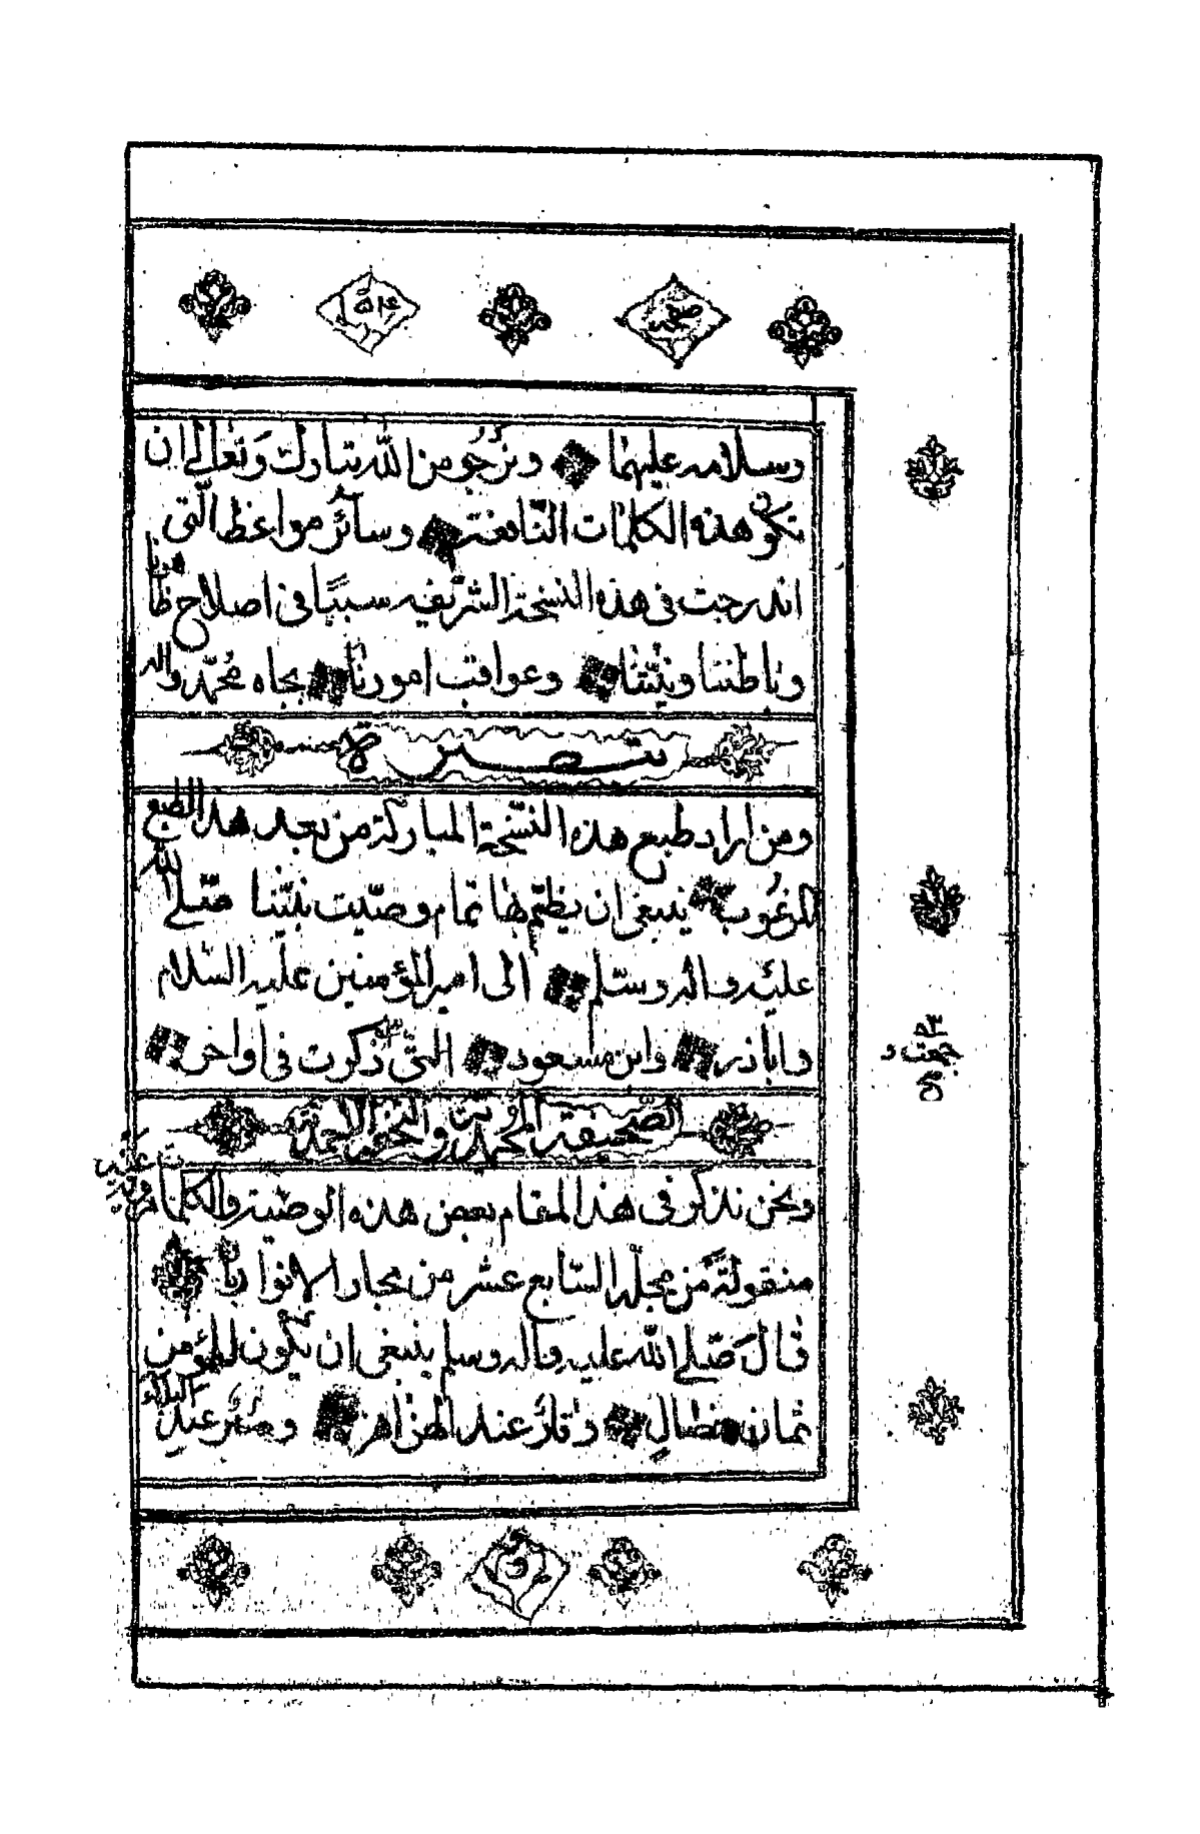 صفحه
وسلامه عليهما ونرجو من الله تبارك وتعالى ان
تكون هذه الكلمات النافعة وسائر مواعظ التى
اندرجت فى هذه النسخة الشريفه سببًا فى اصلاح ظاهرنا
وباطننا ونيّتنا وعواقب امورنا بجاه محمّد واله
تبصرة
ومن اراد طبع هذه النسّخة المباركة من بعد هذ الطبع
المرغوب ينبغى ان يظمّ بها تمام وصيّت نبيّنا صّلى الله
عليه واله وسّلم الى امير المؤمنين عليه السّلام
واباذر وابن مسعود التّى ذكرت فى اواخر
الصّحيفة المحمّديّة والتحفة الاحمديّة
ونحن نذكر فى هذ المقام بعض هذه الوصّية والكلمات
منقولةً من مجلّد السّابع عشر من بحار الانوار
قال صّلى الله عليه واله وسلم ينبغى ان يكون للمؤمن
ثمان خصالٍ وقارٌ عند الهزاهز وصبرٌ عند البلاء